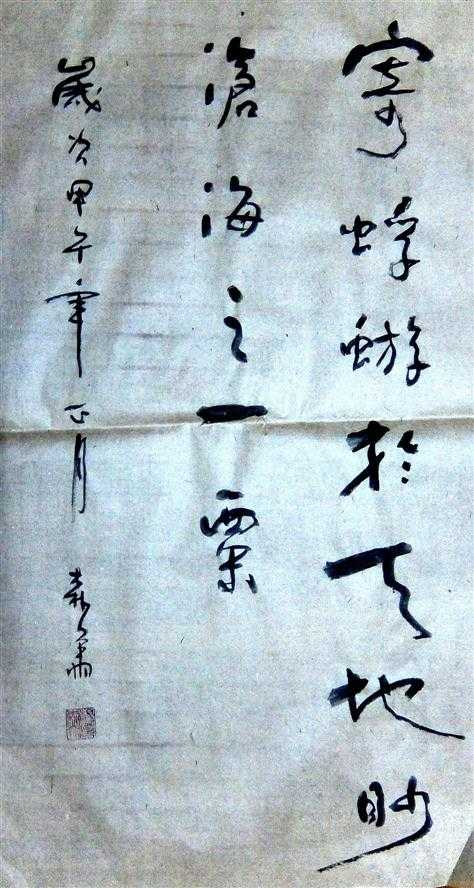 寄蜉蝣於天地眇
滄海之一粟
歲次甲午年正月